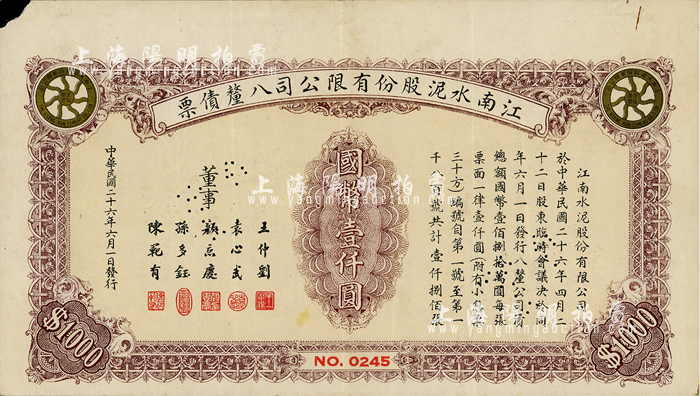 上海陽明拍賣
www.yangmingauction.com
江南水泥股份有限公司八釐債票
江南水泥股份有限公司
於中華民國二十六年四月
十二日股東臨時會議決於同
年六月一日發行八釐公司債
總額國幣壹佰捌拾萬圓每張
票面一律壹仟圓(附有小
三十方)編號自第一號至第一
千八百號共計壹仟捌佰張
國幣壹仟圓
董事
王仲劉
袁心武
顏惠慶
孫多鈺
陳範有
中華民國二十六年六月一日發行
$1000
$1000
NO. 0245